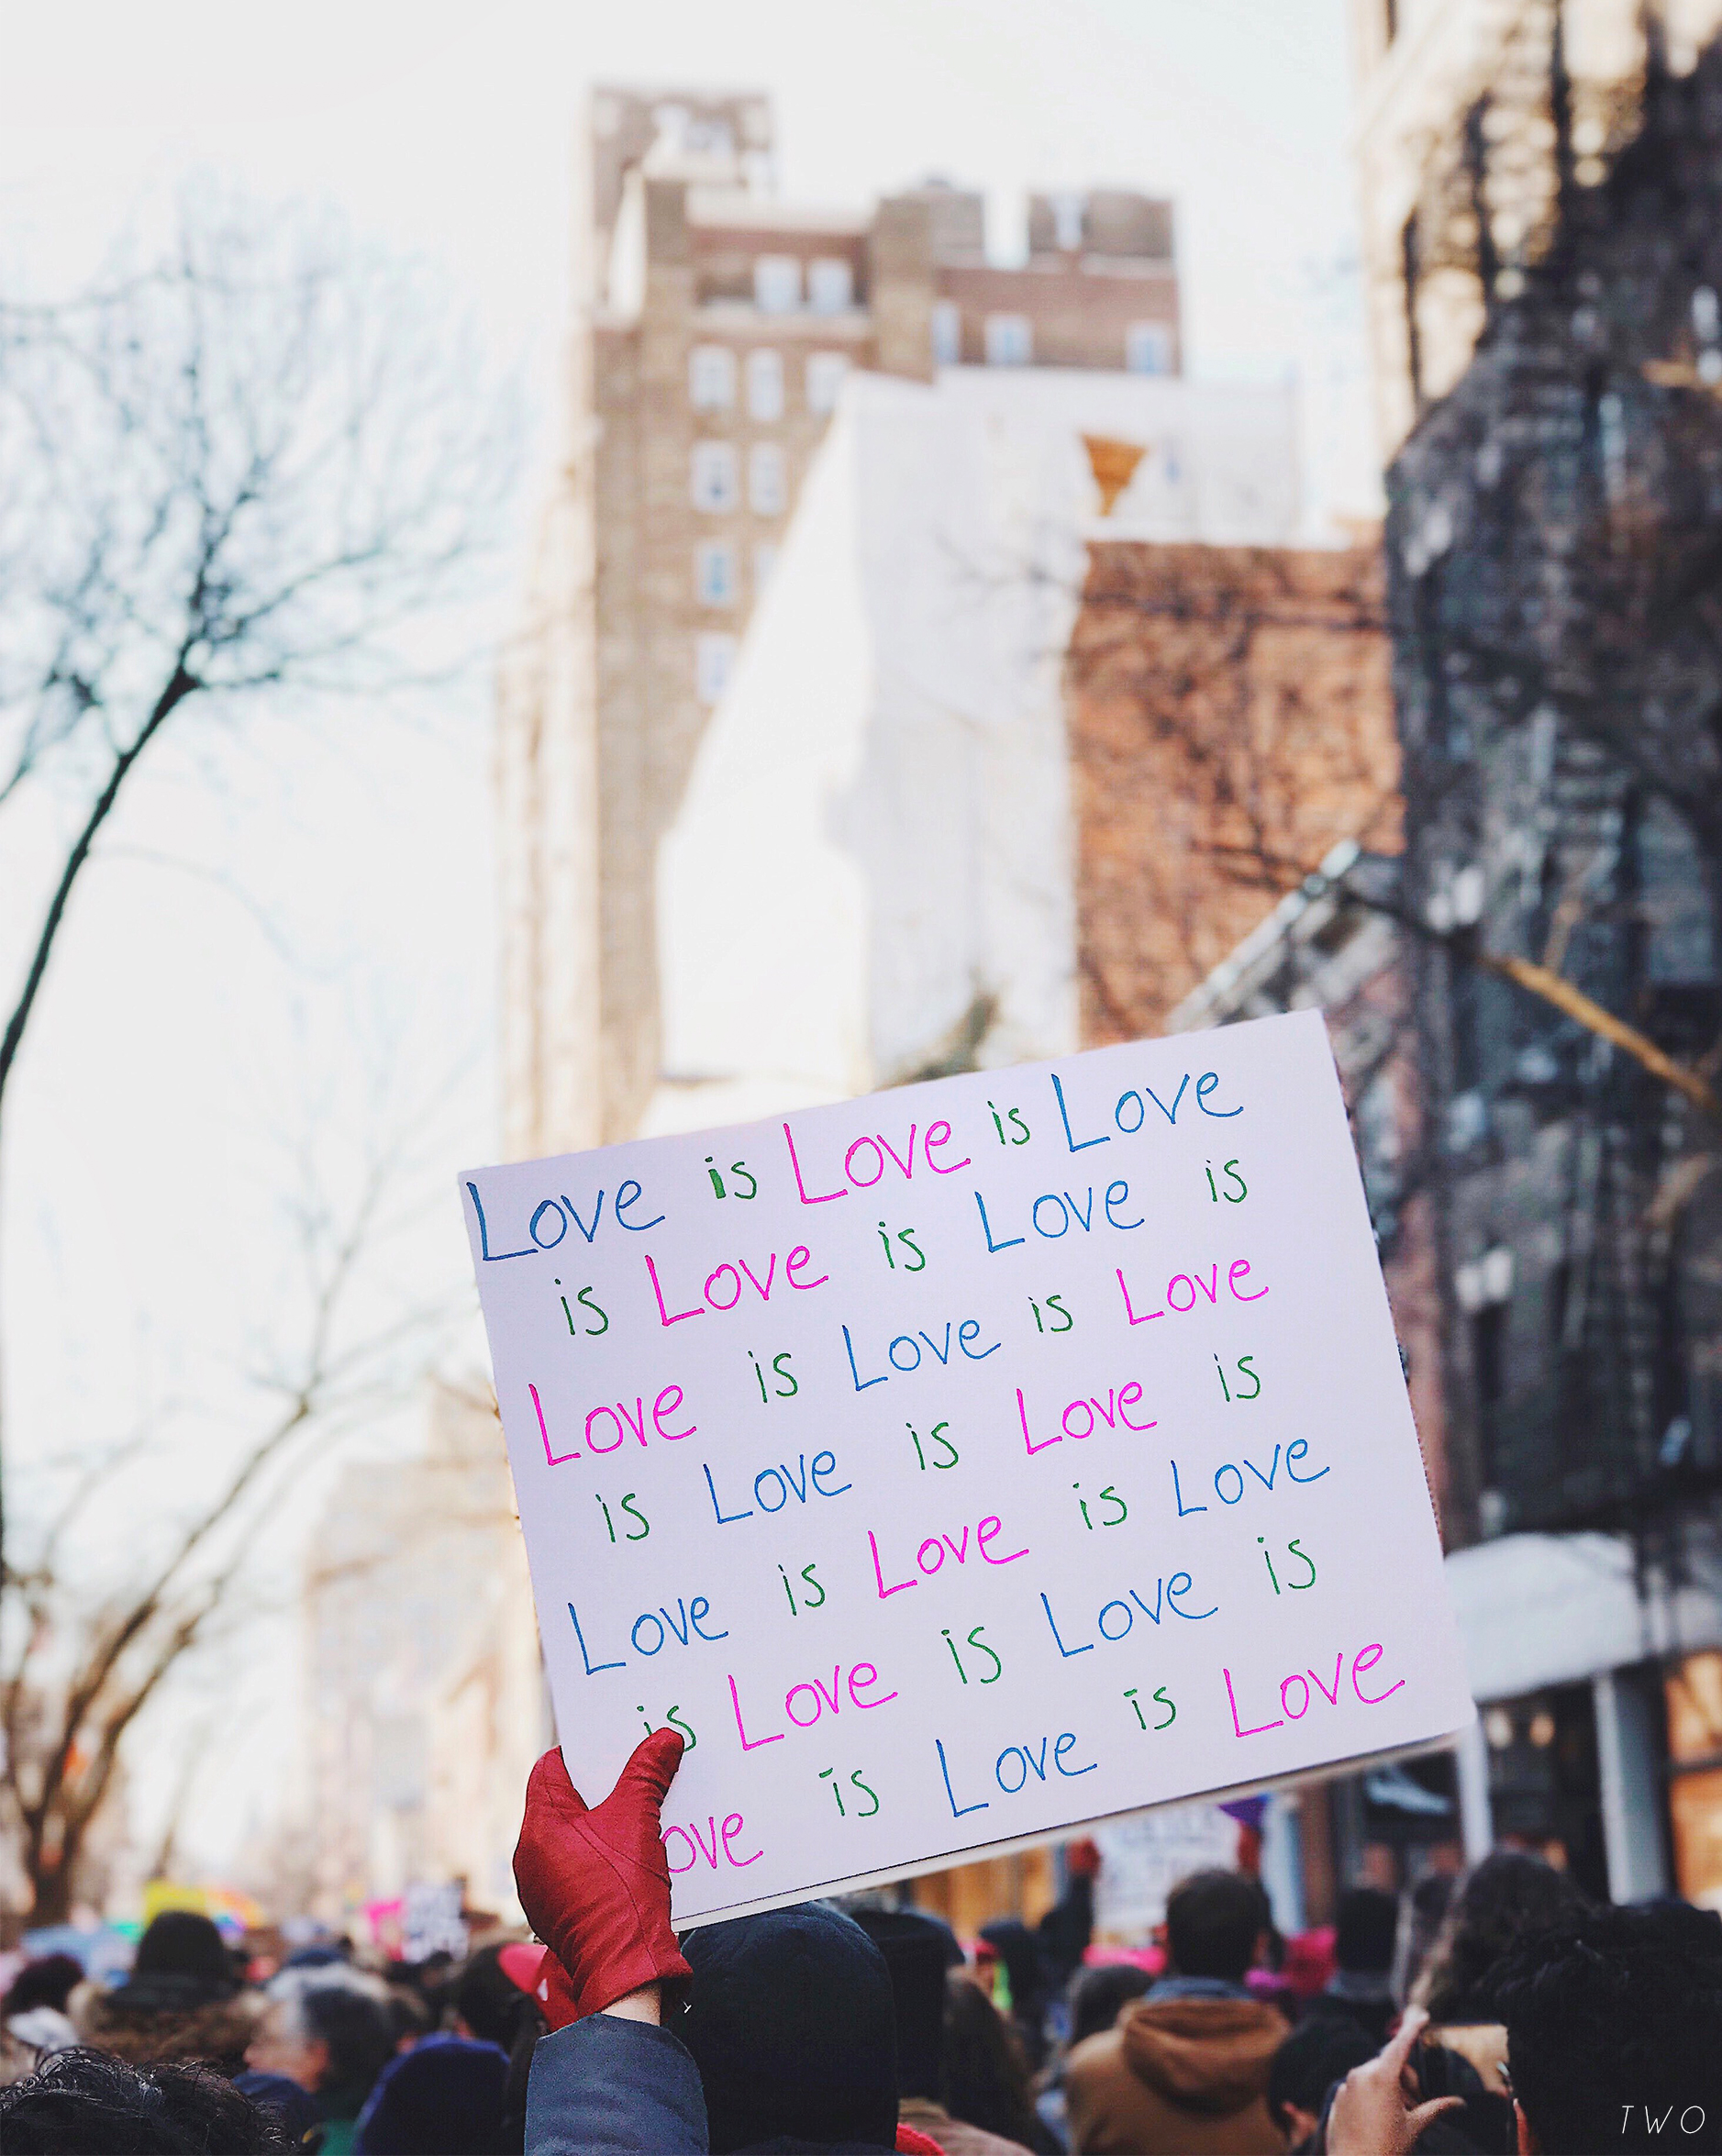 Love is Love is Love
is Love is Love is
Love is Love is Love
is Love is Love is
Love is Love is Love
is Love is Love is
ove is Love is Love
TWO